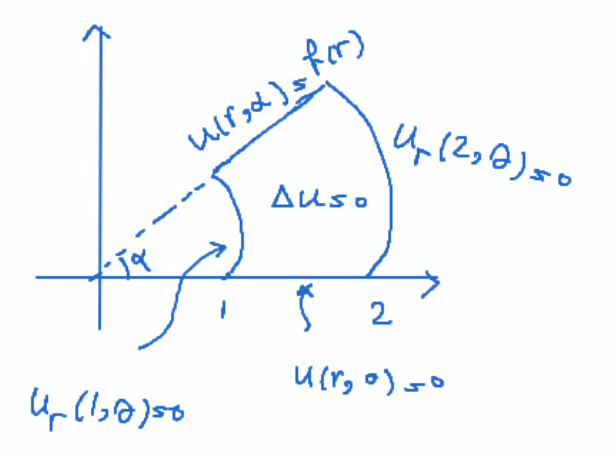 u(r,α)=f(r)
u_r(2,θ)=0
Δu=0
α
1
2
u(r,0)=0
u_r(1,θ)=0